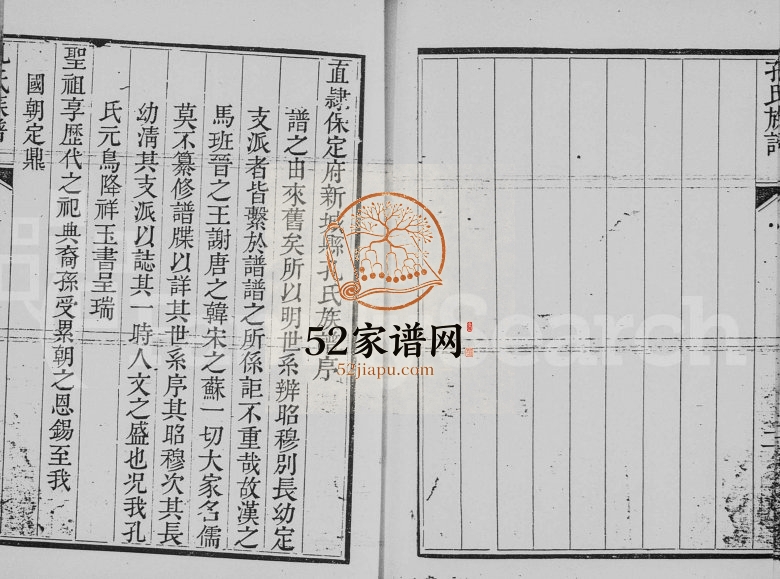 孔氏族譜
直隸保定府新城縣孔氏族譜序
譜之由來舊矣所以明世系辨昭穆別長幼定
支派者皆繫於譜譜之所係詎不重哉故漢之
馬班晉之王謝唐之韓宋之蘇一切大家名儒
莫不纂修譜牒以詳其世系序其昭穆次其長
幼清其支派以誌其一時人文之盛也況我孔
氏元鳥降祥玉書呈瑞
聖祖享歷代之祀典裔孫受累朝之恩錫至我
國朝定鼎
氏族譜
52家谱网
52jiapu.com
Search